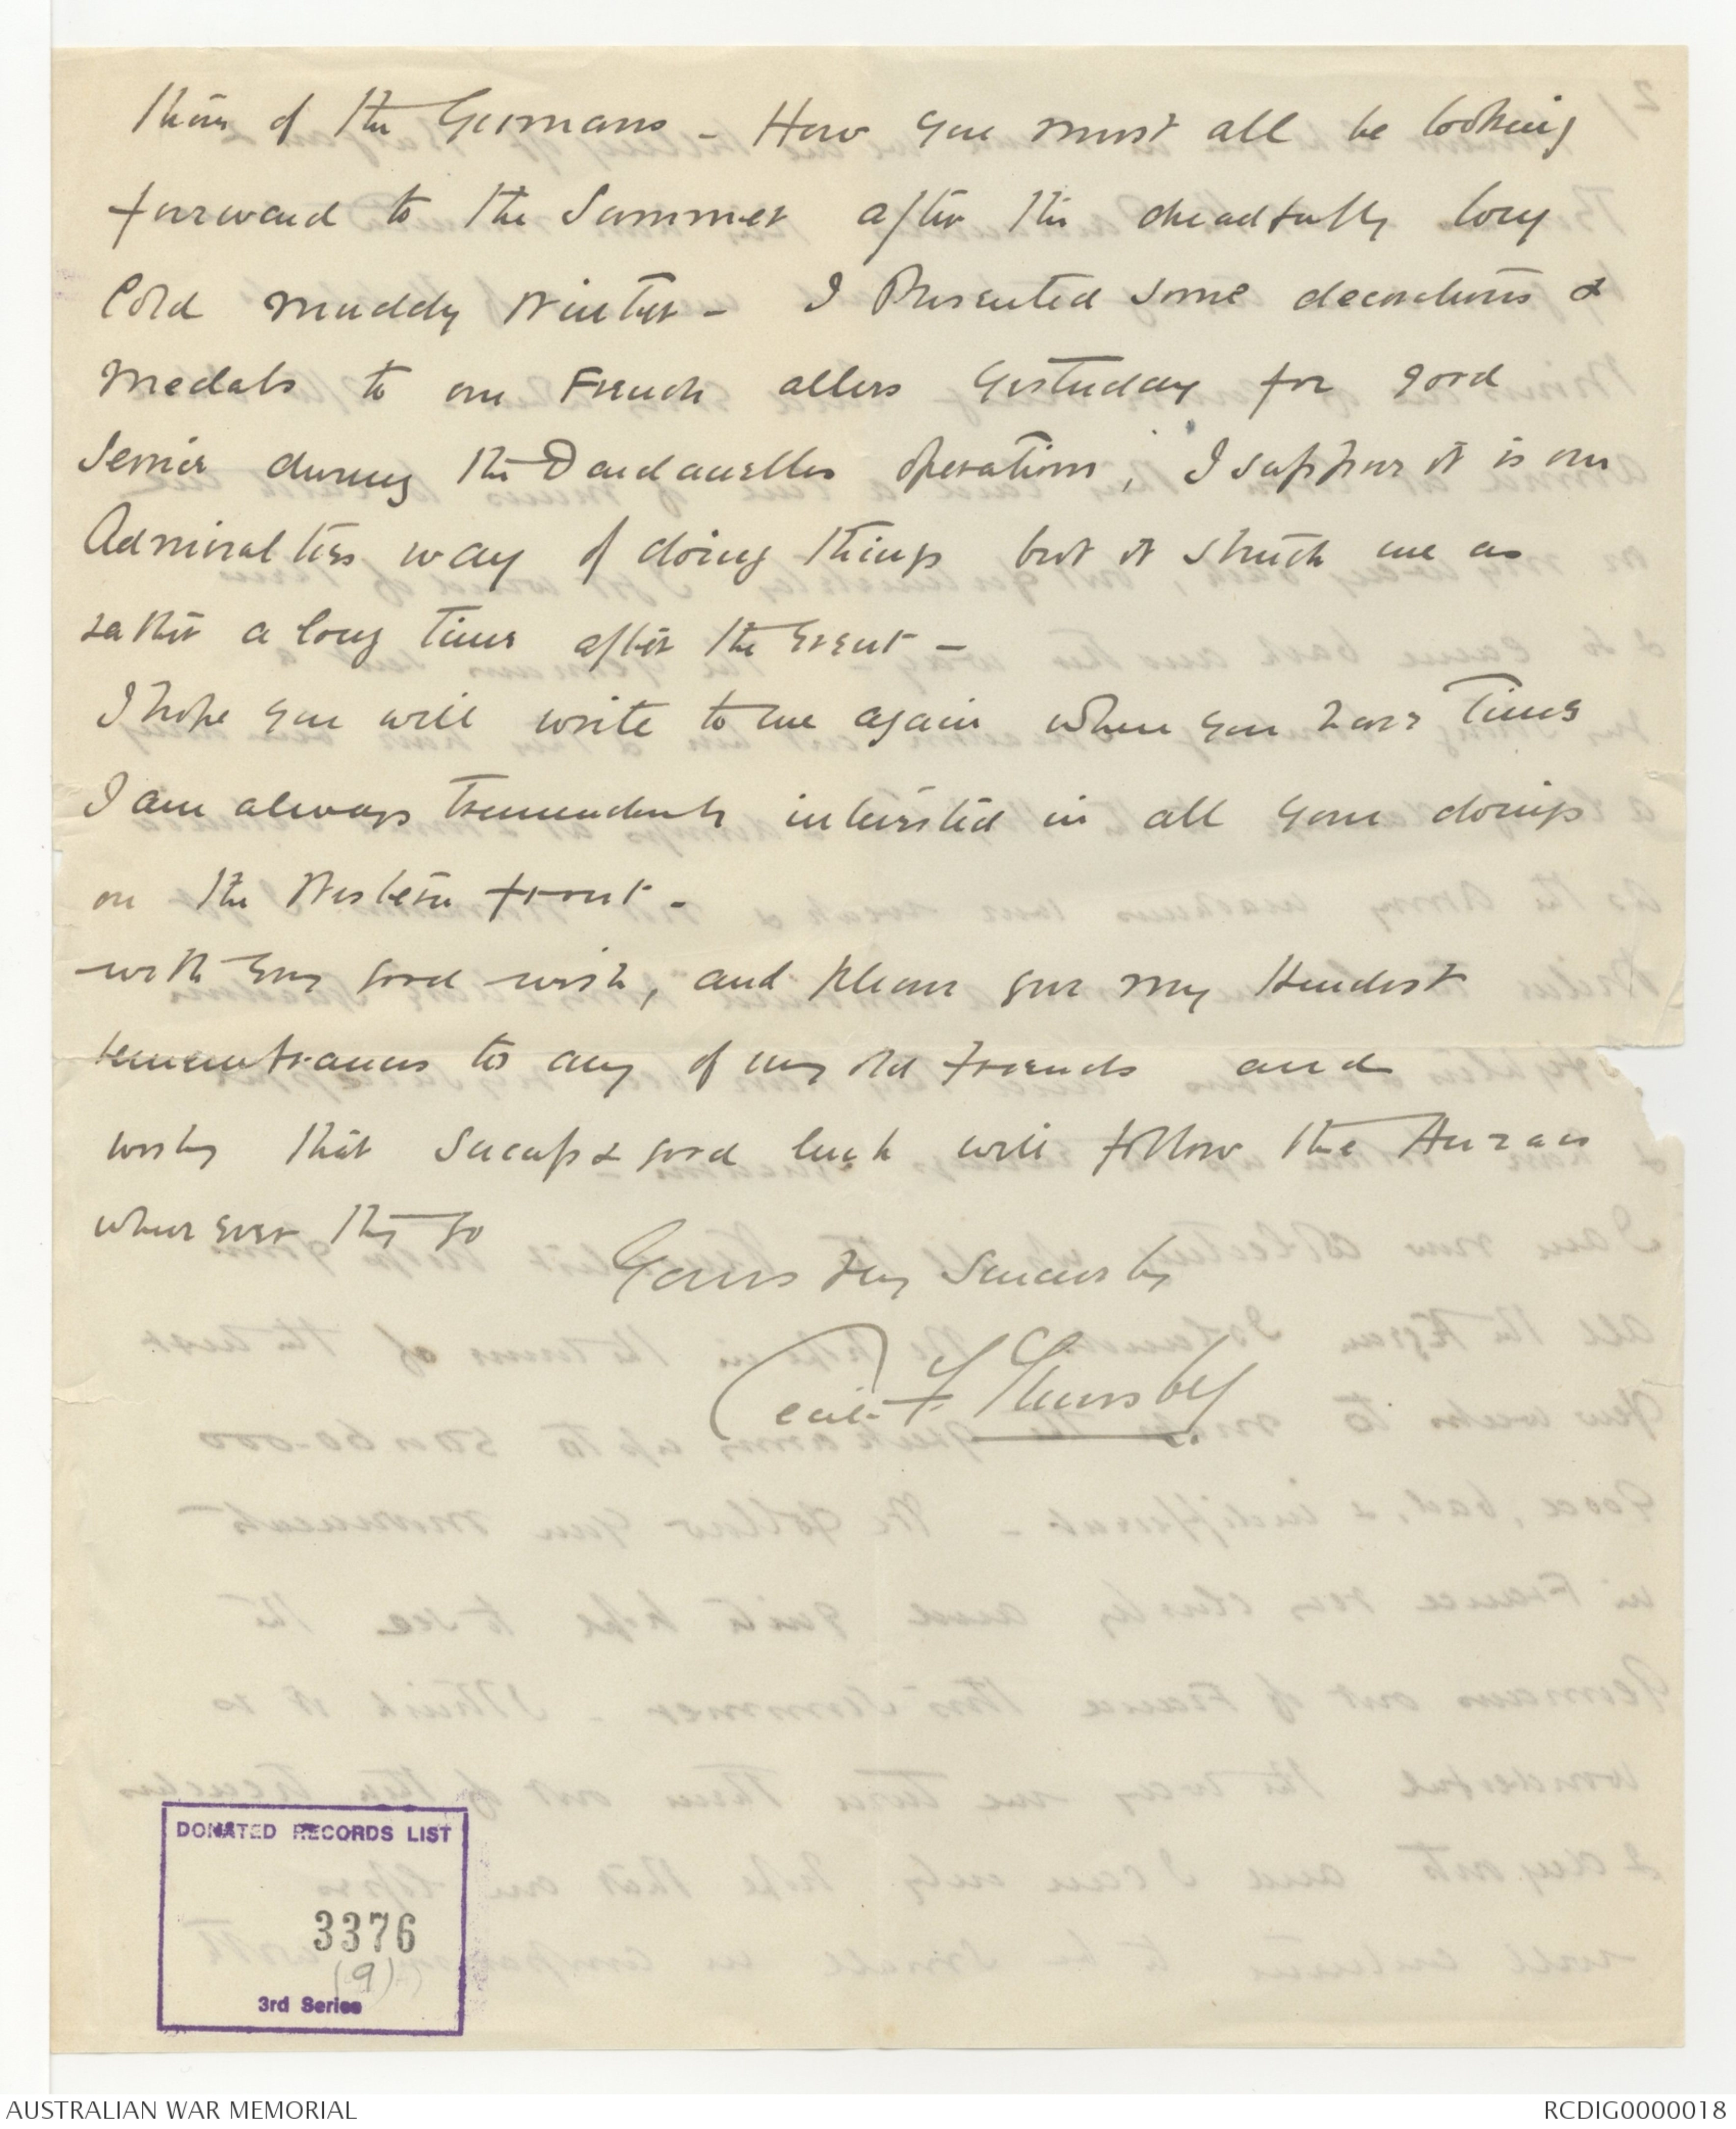 those of the Germans - How you must all be looking
forward to the Summer after the dreadfully long
Cold muddy Winter - I Presented some decorations &
Medals to our French allies Yesterday for good
Service during the Dardanelles operations, I suppose it is our
Admiralties way of doing things but it struck me as
rather a long time after the Event -
I hope you will write to me again when you have Time
I am always tremendously interested in all your doings
on the Western front -
with Every good wish, and please give my kindest
remembrances to any of my old friends and
wishing that Success & good luck will follow the Anzacs
where ever they go
Yours Very Sincerely
Cecil F Thursby.
DONATED RECORDS LIST
3376
(9)
3rd Series
AUSTRALIAN WAR MEMORIAL
RCDIG0000018